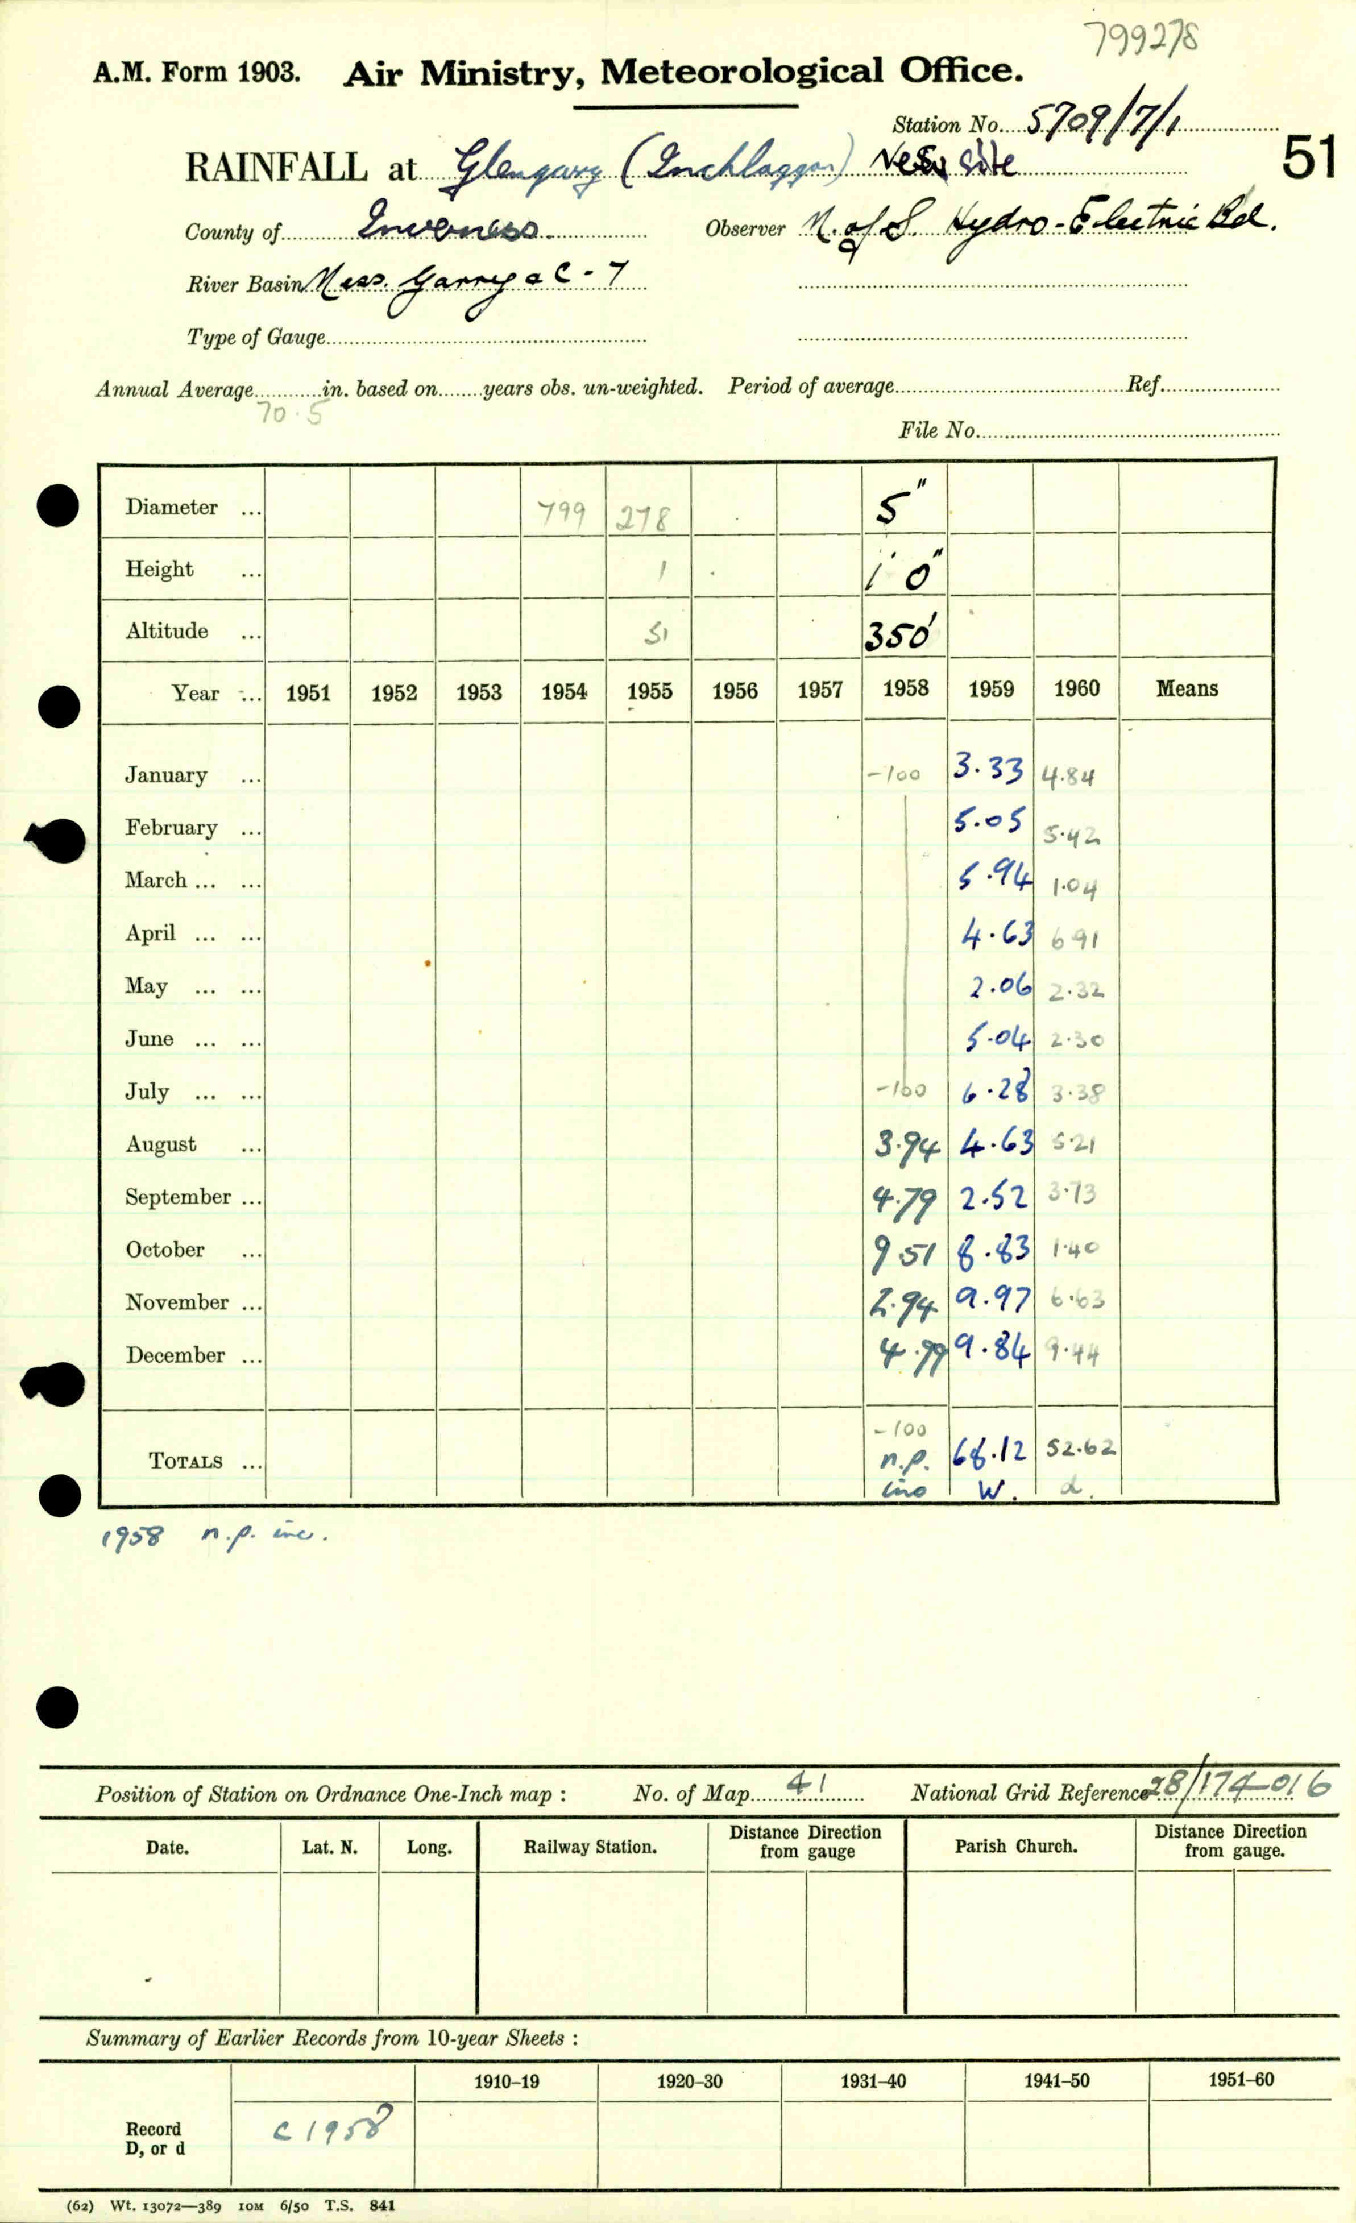 799278
A.M. Form 1903. Air Ministry, Meteorological Office.
Station No. 5709/7/1
51
RAINFALL at Glengarry (Inchlaggan) New Site
County of Inverness Observer N. of S. Hydro-Electric Bd.
River Basin Ness. Garry a C - 7
Type of Gauge
Annual Average in. based on years obs. un-weighted. Period of average Ref.
70.5
File No.
Diameter ... 799 278 5"
Height ... 1 1' 0"
Altitude ... 51 350'
Year ... 1951 1952 1953 1954 1955 1956 1957 1958 1959 1960 Means
January ... -100 3.33 4.84
February ... 5.05 5.42
March ... ... 5.94 1.04
April ... ... 4.63 6 91
May ... ... 2.06 2.32
June ... ... 5.04 2.30
July ... ... -100 6.28 3.38
August ... 3.94 4.63 5.21
September ... 4.79 2.52 3.73
October ... 9 51 8.83 1.40
November ... 2.94 9.97 6.63
December ... 4.79 9.84 9.44
TOTALS ... -100 n.p. inc 68.12 W. 52.62 d.
1958 n.p. inc.
Position of Station on Ordnance One-Inch map : No. of Map 41 National Grid Reference 28/174-016
Date. Lat. N. Long. Railway Station. Distance from Direction gauge Parish Church. Distance from Direction gauge.
Summary of Earlier Records from 10-year Sheets :
1910-19 1920-30 1931-40 1941-50 1951-60
Record D, or d c 1958
(62) Wt. 13072—389 10M 6/50 T.S. 841